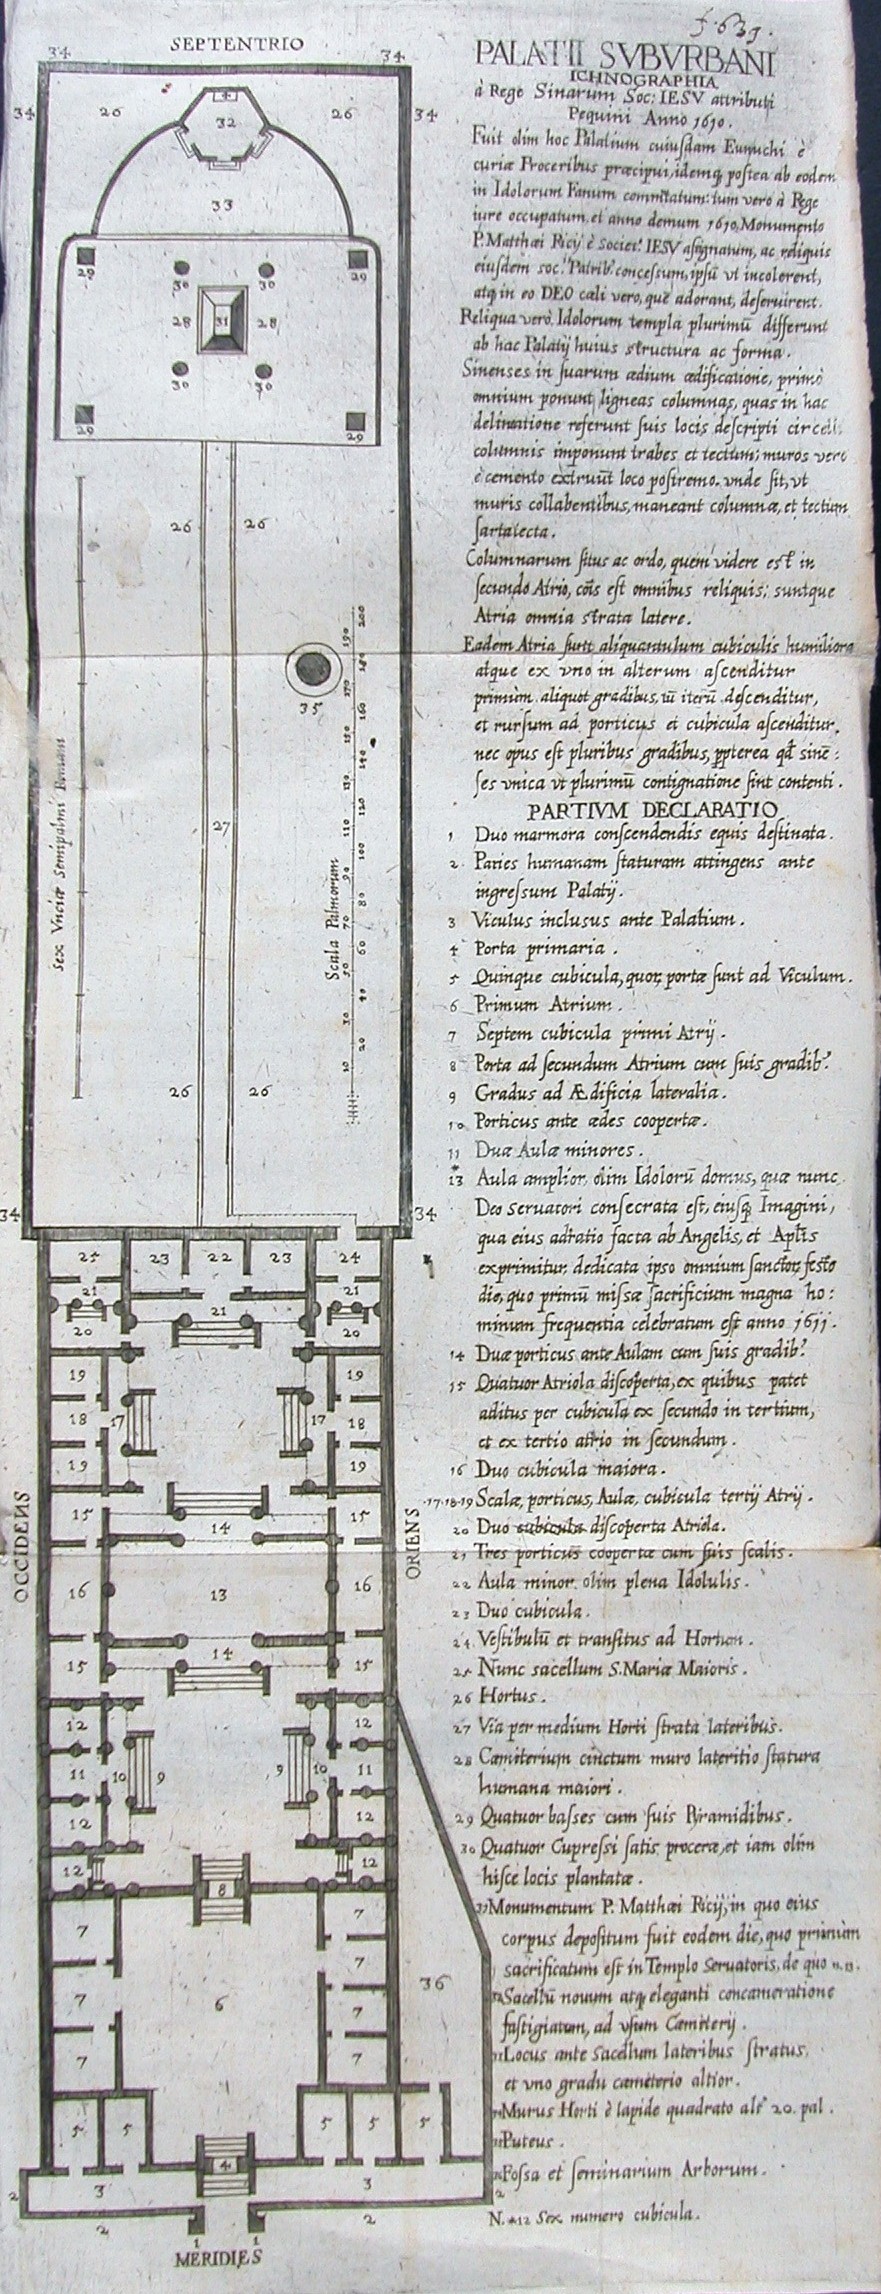 f. 639.
SEPTENTRIO
PALATII SVBVRBANI
ICHNOGRAPHIA
à Rege Sinarum Soc: IESV attributi
Pequini Anno 1610.
Fuit olim hoc Palatium cuiusdam Eunuchi è
curiæ Proceribus præcipui, idemq, postea ab eodem
in Idolorum Fanum commutatum: tum vero à Rege
iure occupatum, et anno demum 1610, Monumento
P. Matthæi Ricij è Societ. IESV assignatum, ac reliquis
eiusdem soc. Patrib. concessum, ipsũ vt incolerent,
atq, in eo DEO cæli vero, quẽ adorant, deseruirent.
Reliqua verò Idolorum templa plurimũ differunt
ab hac Palatij huius structura ac forma.
Sinenses in suarum ædium ædificatione, primò
omnium ponunt ligneas columnas, quas in hac
delineatione referunt suis locis descripti circelli
columnis imponunt trabes et tectum; muros verò
è cemento extruũt loco postremo. vnde fit, vt
muris collabentibus, maneant columnæ, et tectum
sartatecta.
Columnarum situs ac ordo, quem videre est in
secundo Atrio, cõis est omnibus reliquis; suntque
Atria omnia strata latere.
Eadem Atria sunt aliquantulum cubiculis humiliora
atque ex vno in alterum ascenditur
primùm aliquot gradibus, tũ iterũ descenditur,
et rursum ad porticus et cubicula ascenditur,
nec opus est pluribus gradibus, ppterea qđ sinẽ:
ses vnica vt plurimũ contignatione sint contenti.
PARTIVM DECLARATIO
1 Duo marmora conscendendis equis destinata.
2 Paries humanam staturam attingens ante
ingressum Palatij.
3 Viculus inclusus ante Palatium.
4 Porta primaria.
5 Quinque cubicula, quor, portæ sunt ad Viculum.
6 Primum Atrium.
7 Septem cubicula primi Atrij.
8 Porta ad secundum Atrium cum suis gradib.
9 Gradus ad Ædificia lateralia.
10 Porticus ante ædes coopertæ.
11 Duæ Aulæ minores.
*
13 Aula amplior, olim Idolorũ domus, quæ nunc
Deo servatori consecrata est, eiusq, Imagini,
qua eius adratio facta ab Angelis, et Aplis
exprimitur, dedicata ipso omnium sanctor, festo
die, quo primũ missæ sacrificium magna ho:
minum frequentia celebratum est anno 1611.
14 Duæ porticus ante Aulam cum suis gradib.
15 Quatuor Atriola discoperta, ex quibus patet
aditus per cubicula ex secundo in tertium,
et ex tertio atrio in secundum.
16 Duo cubicula maiora.
17.18.19 Scalæ, porticus, Aulæ, cubicula tertij Atrij.
20 Duo cubicula discoperta Atriola.
21 Tres porticus coopertæ cum suis scalis.
22 Aula minor, olim plena Idolulis.
23 Duo cubicula.
24 Vestibulũ et transitus ad Hortum.
25 Nunc sacellum S. Mariæ Maioris.
26 Hortus.
27 Via per medium Horti strata lateribus.
28 Cæmeterium cinctum muro lateritio statura
humana maiori.
29 Quatuor basses cum suis Pyramidibus.
30 Quatuor Cupressi satis proceræ, et iam olim
hisce locis plantatæ.
31 Monumentum P. Matthæi Ricij, in quo eius
corpus depositum fuit eodem die, quo primùm
sacrificatum est in Templo Servatoris, de quo n. 13.
Sacellũ novum atq, eleganti concameratione
fastigiatum, ad vsum Cæmeterij.
Locus ante Sacellum lateribus stratus,
et vno gradu cæmeterio altior.
Murus Horti è lapide quadrato alt. 20. pal.
Puteus.
Fossa et seminarium Arborum.
N. *12 Sex numero cubicula.
34 34
34 26 32 26 34
33
29 29
30 30
28 31 28
30 30
29 29
26 26
35
27
Sex Vnciæ Semipalmi Romani
Scala Palmorum
10 20 30 40 50 60 70 80 90 100 110 120 130 140 150 160 170 180 190 200
26 26
34 34
25 23 22 23 24
21 21 21
20 20
19 19
18 17 17 18
19 19
15 14 15
OCCIDENS
ORIENS
16 13 16
15 14 15
12 12
11 10 9 9 10 11
12 12
12 8 12
7 7
7
7 6 7 36
7 7
5 5 5 5 5
4
2 3 3 2
2 2
1 1
MERIDIES